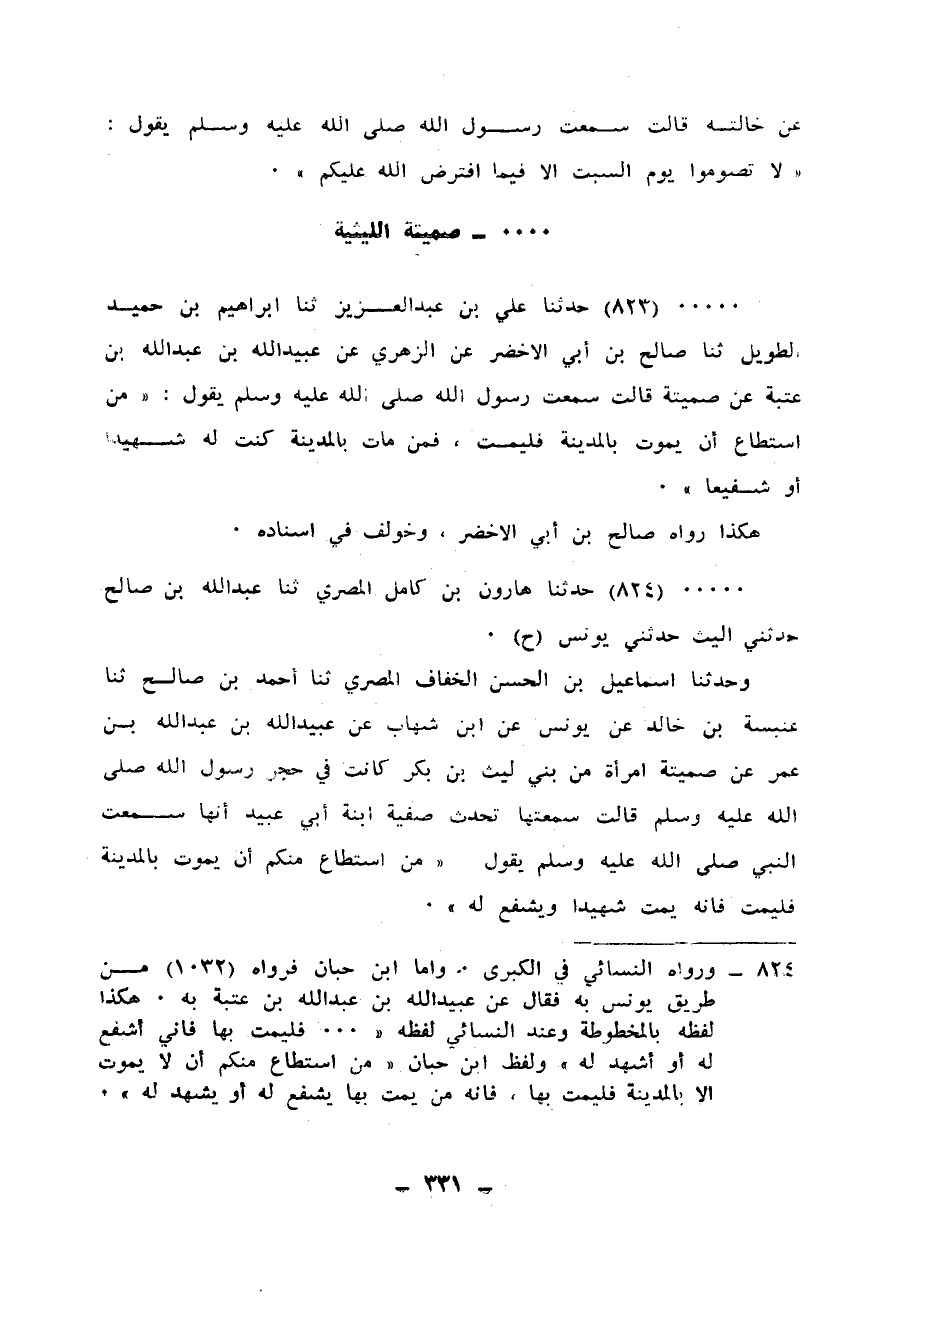 عن خالتـه قالت سـمعت رسـول الله صلى الله عليه وسـلم يقول :
« لا تصوموا يوم السبت الا فيما افترض الله عليكم » ٠
٠٠٠٠ ـ صميتة الليثية
٠٠٠٠٠ (٨٢٣) حدثنا علي بن عبدالعـزيز ثنا ابراهيم بن حميـد
الطويل ثنا صالح بن أبي الاخضر عن الزهري عن عبيدالله بن عبدالله بن
عتبة عن صميتة قالت سمعت رسول الله صلى الله عليه وسلم يقول : « من
استطاع أن يموت بالمدينة فليمـت ، فمن مات بالمدينة كنت له شـهيدا
أو شـفيعا » ٠
هكذا رواه صالح بن أبي الاخضر ، وخولف في اسناده ٠
٠٠٠٠٠ (٨٢٤) حدثنا هارون بن كامل المصري ثنا عبدالله بن صالح
حدثني اليث حدثني يونس (ح) ٠
وحدثنا اسماعيل بن الحسن الخفاف المصري ثنا أحمد بن صالـح ثنا
عنبسة بن خالد عن يونس عن ابن شهاب عن عبيدالله بن عبدالله بـن
عمر عن صميتة امرأة من بني ليث بن بكر كانت في حجر رسول الله صلى
الله عليه وسلم قالت سمعتها تحدث صفية ابنة أبي عبيد أنها سـمعت
النبي صلى الله عليه وسلم يقول « من استطاع منكم أن يموت بالمدينة
فليمت فانه يمت شهيدا ويشفع له » ٠
٨٢٤ ـ ورواه النسائي في الكبرى ٠ واما ابن حبان فرواه (١٠٣٢) مـن
طريق يونس به فقال عن عبيدالله بن عبدالله بن عتبة به ٠ هكذا
لفظه بالمخطوطة وعند النسائي لفظه « ٠٠٠ فليمت بها فاني أشفع
له أو أشهد له » ولفظ ابن حبان « من استطاع منكم أن لا يموت
الا بالمدينة فليمت بها ، فانه من يمت بها يشفع له أو يشهد له » ٠
ـ ٣٣١ ـ